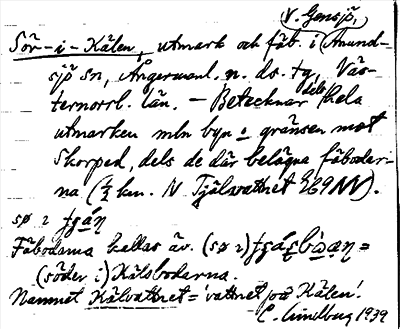 V. Gensjö,
Sör-i-Kälen, utmark och fäb. i Anund-
sjö sn, Ångermanl. n. ds. tg, Väs-
ternorrl. län. – Betecknar dels hela
utmarken mln byn o gränsen mot
Skorped, dels de där belägna fäbodar-
na (½ km. N Tjälvattnet
Fäbodarna kallas äv.
(söder i) Kälsbodarna.
Namnet Kälvattnet = 'vattnet på Kälen'.
C. Lindberg 1939